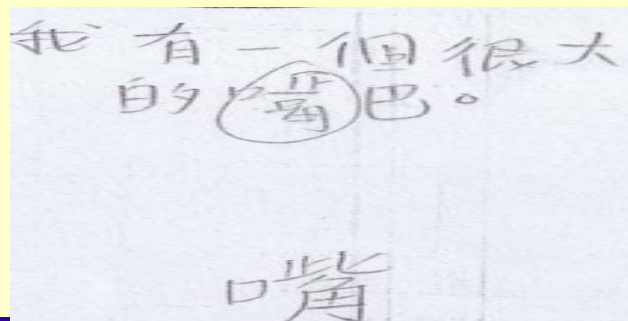 我有一個很大
的嘴巴。
嘴